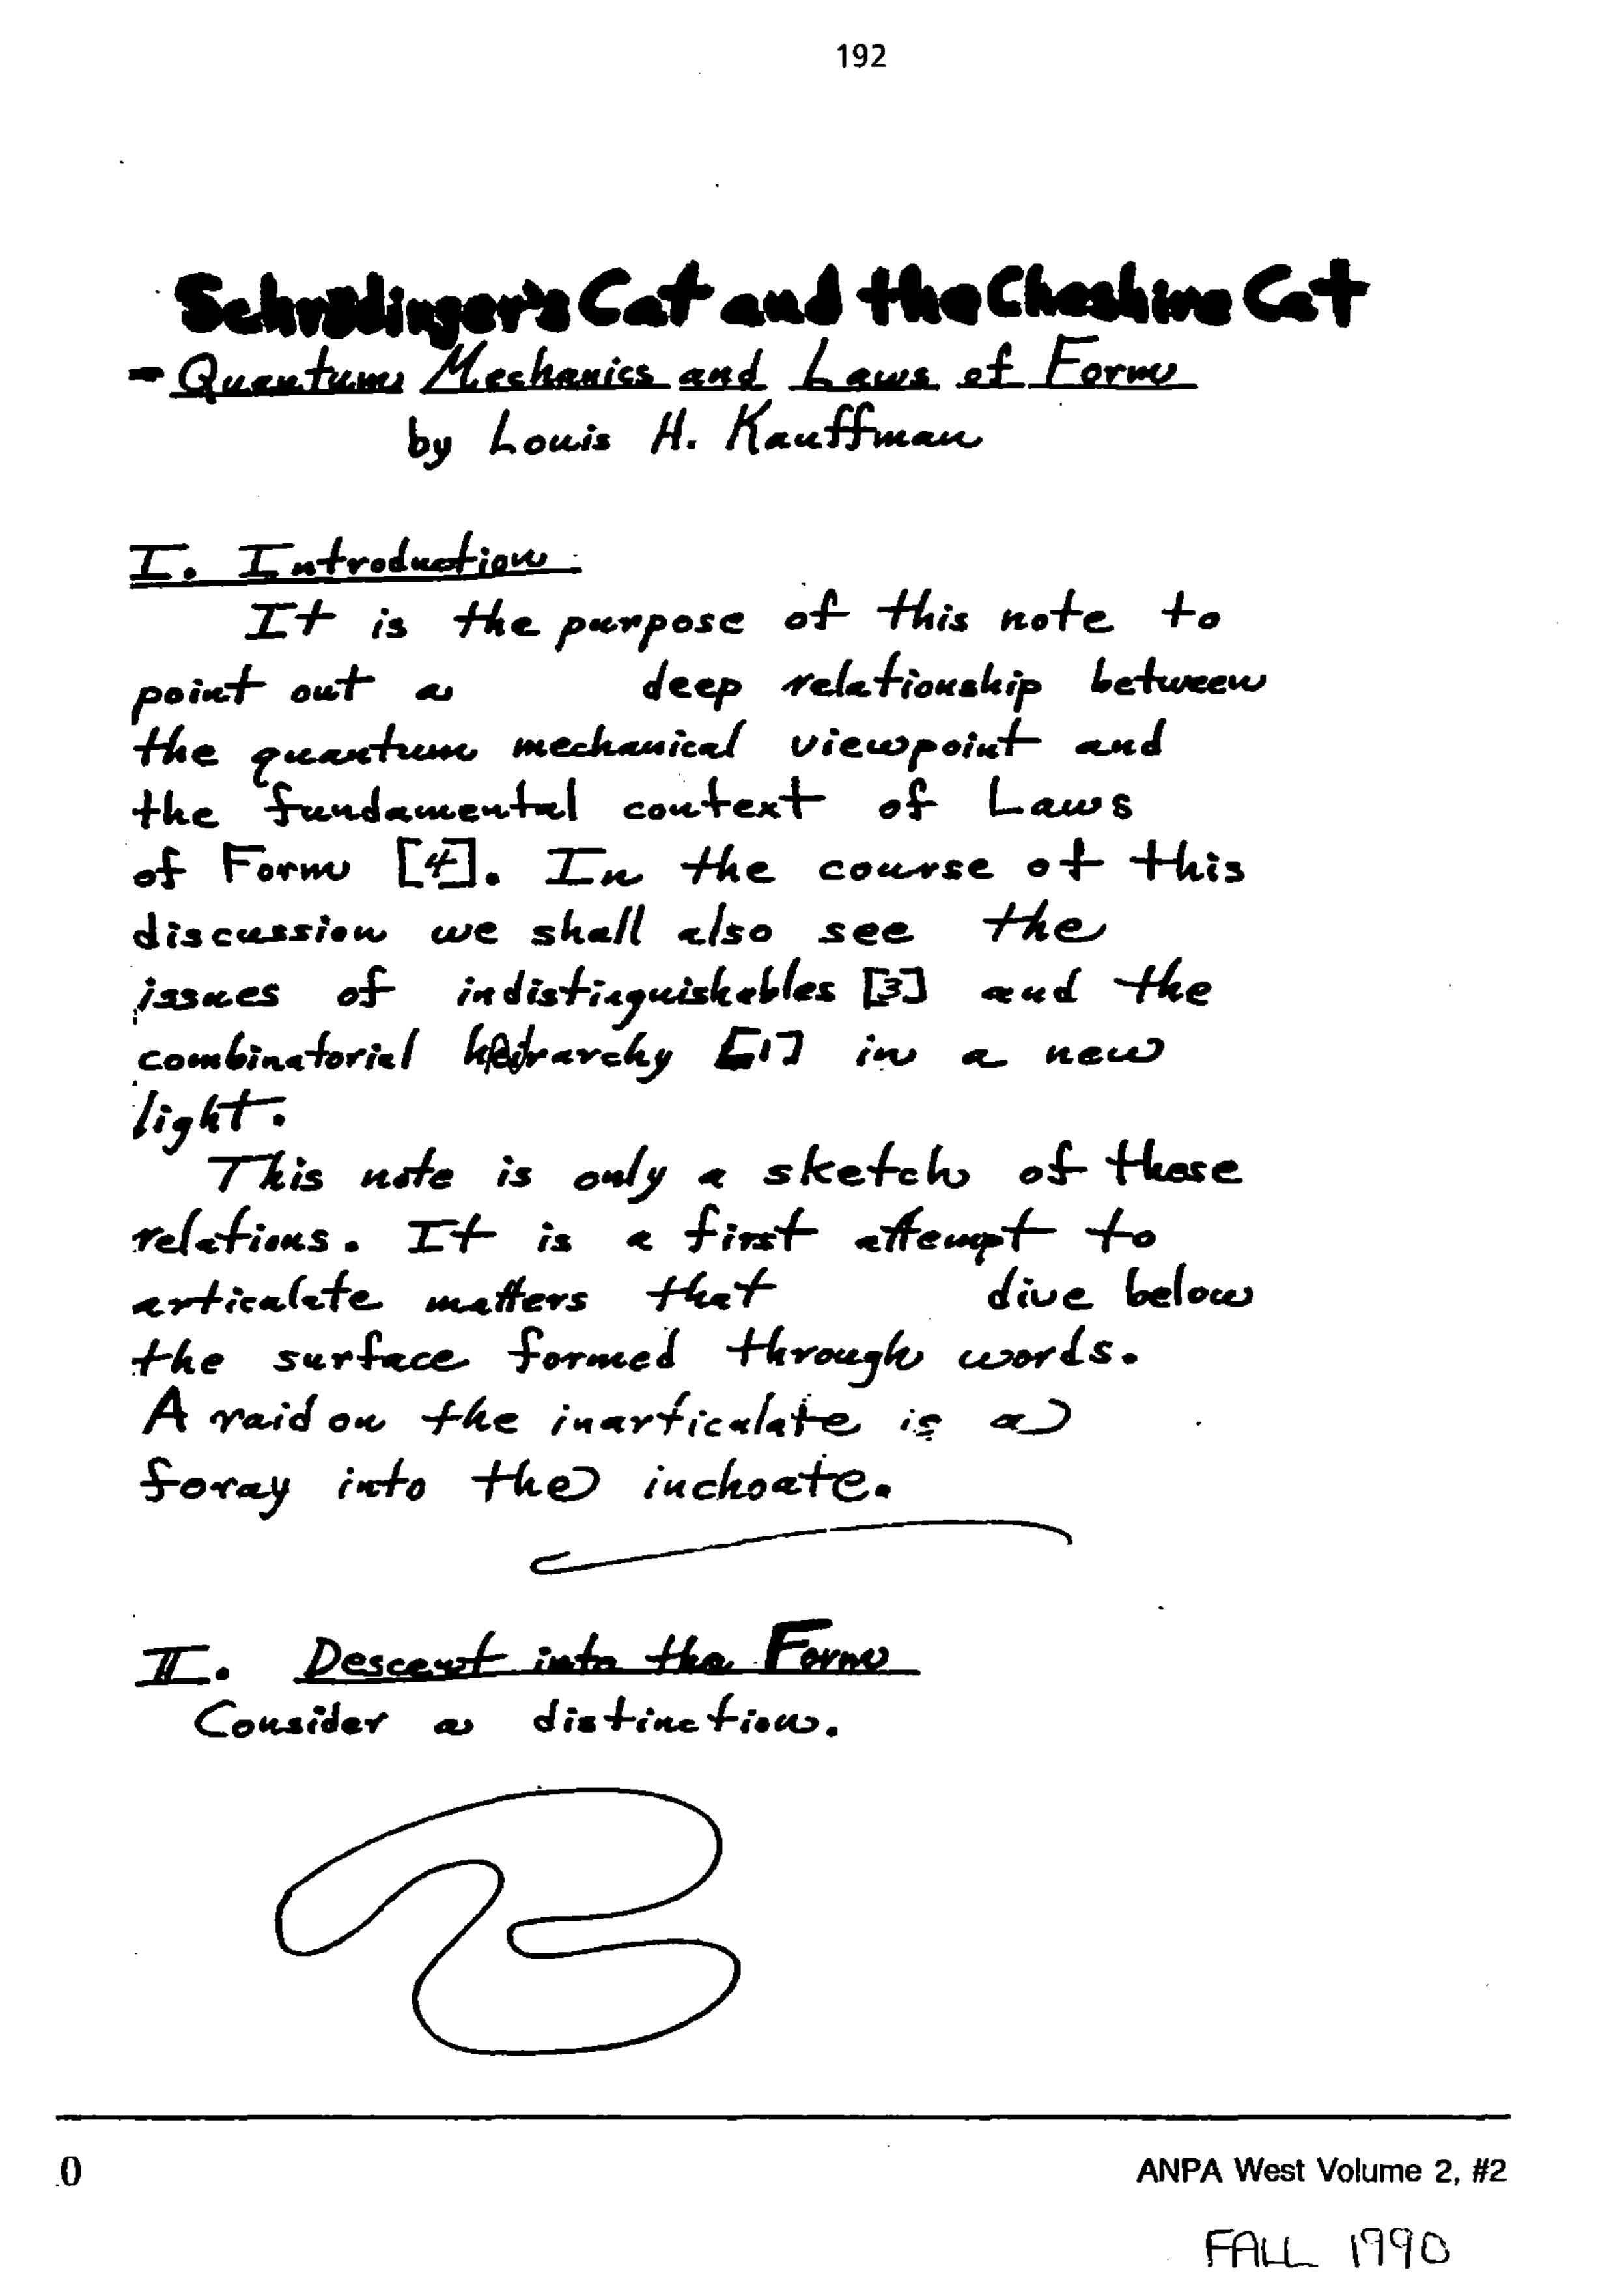 192
Schrödinger's Cat and the Cheshire Cat
- Quantum Mechanics and Laws of Form
by Louis H. Kauffman
I. Introduction
It is the purpose of this note to
point out a deep relationship between
the quantum mechanical viewpoint and
the fundamental context of Laws
of Form [4]. In the course of this
discussion we shall also see the
issues of indistinguishables [3] and the
combinatorial heirarchy [1] in a new
light.
This note is only a sketch of these
relations. It is a first attempt to
articulate matters that dive below
the surface formed through words.
A raid on the inarticulate is a
foray into the inchoate.
II. Descent into the Form
Consider a distinction.
0
ANPA West Volume 2, #2
FALL 1990